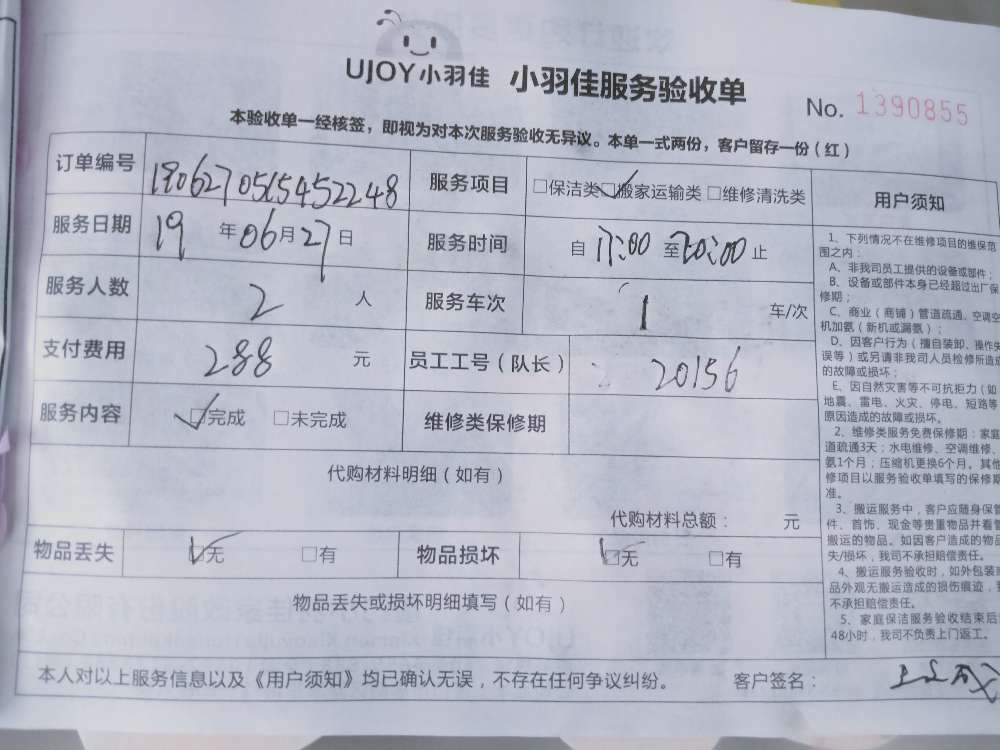 UJOY小羽佳 小羽佳服务验收单 No. 1390855
本验收单一经核签，即视为对本次服务验收无异议。本单一式两份，客户留存一份（红）
订单编号 190627051545 2248 服务项目 □保洁类 ☑搬家运输类 □维修清洗类
服务日期 19 年 06 月 27 日 服务时间 自 17:00 至 20:00 止
服务人数 2 人 服务车次 1 车/次
支付费用 288 元 员工工号（队长） 20156
服务内容 ☑完成 □未完成 维修类保修期
代购材料明细（如有）
代购材料总额： 元
物品丢失 ☑无 □有 物品损坏 ☑无 □有
物品丢失或损坏明细填写（如有）
用户须知
1、下列情况不在维修项目的维保范
围之内：
A、非我司员工提供的设备或部件；
B、设备或部件本身已经超过出厂保
修期；
C、商业（商铺）管道疏通、空调空
机加氨（新机或漏氨）；
D、因客户行为（擅自装卸、操作失
误等）或另请非我司人员检修所造成
的故障或损坏；
E、因自然灾害等不可抗拒力（如
地震、雷电、火灾、停电、短路等
原因造成的故障或损坏。
2、维修类服务免费保修期：家庭
道疏通3天；水电维修、空调维修、
氨1个月；压缩机更换6个月。其他
修项目以服务验收单填写的保修期
准。
3、搬运服务中，客户应随身保管
件、首饰、现金等贵重物品并看管
搬运的物品。如因客户造成的物品
失/损坏，我司不承担赔偿责任。
4、搬运服务验收时，如外包装或
品外观无搬运造成的损伤痕迹，我
不承担赔偿责任。
5、家庭保洁服务验收结束后
48小时，我司不负责上门返工。
本人对以上服务信息以及《用户须知》均已确认无误，不存在任何争议纠纷。 客户签名：